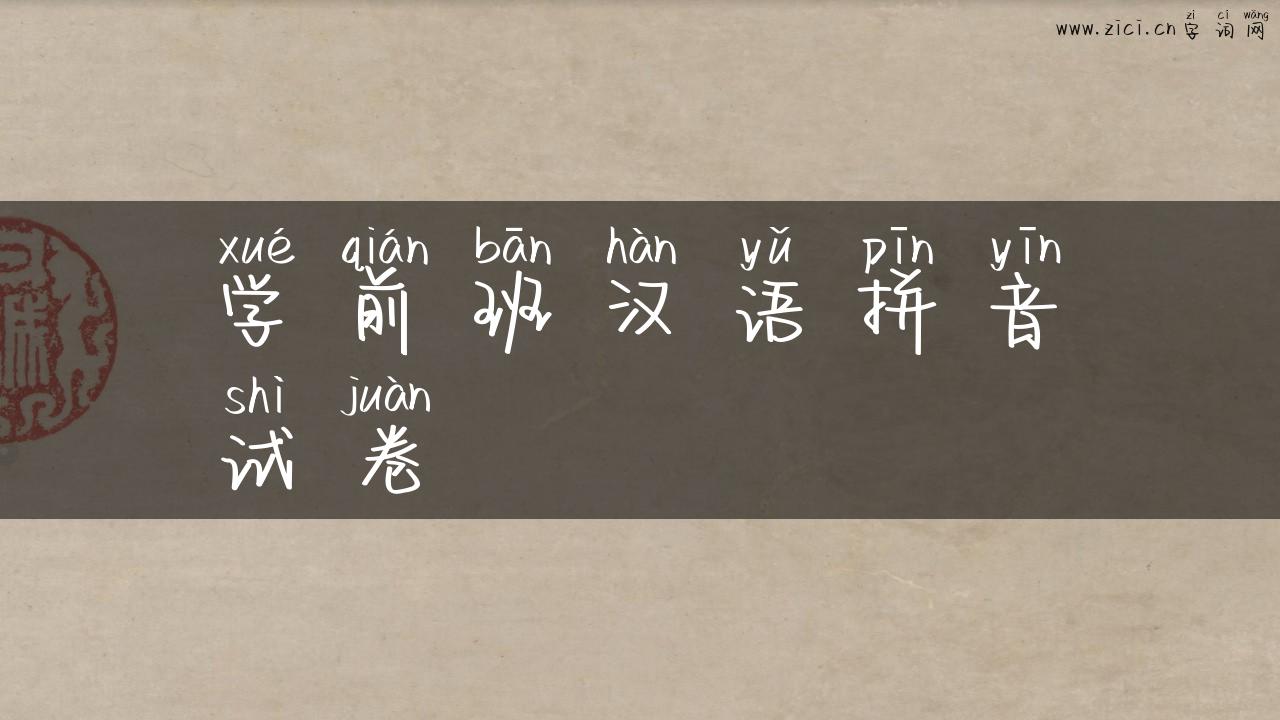 zì cí wǎng
www.zici.cn 字 词 网
xué qián bān hàn yǔ pīn yīn
学 前 班 汉 语 拼 音
shì juàn
试 卷